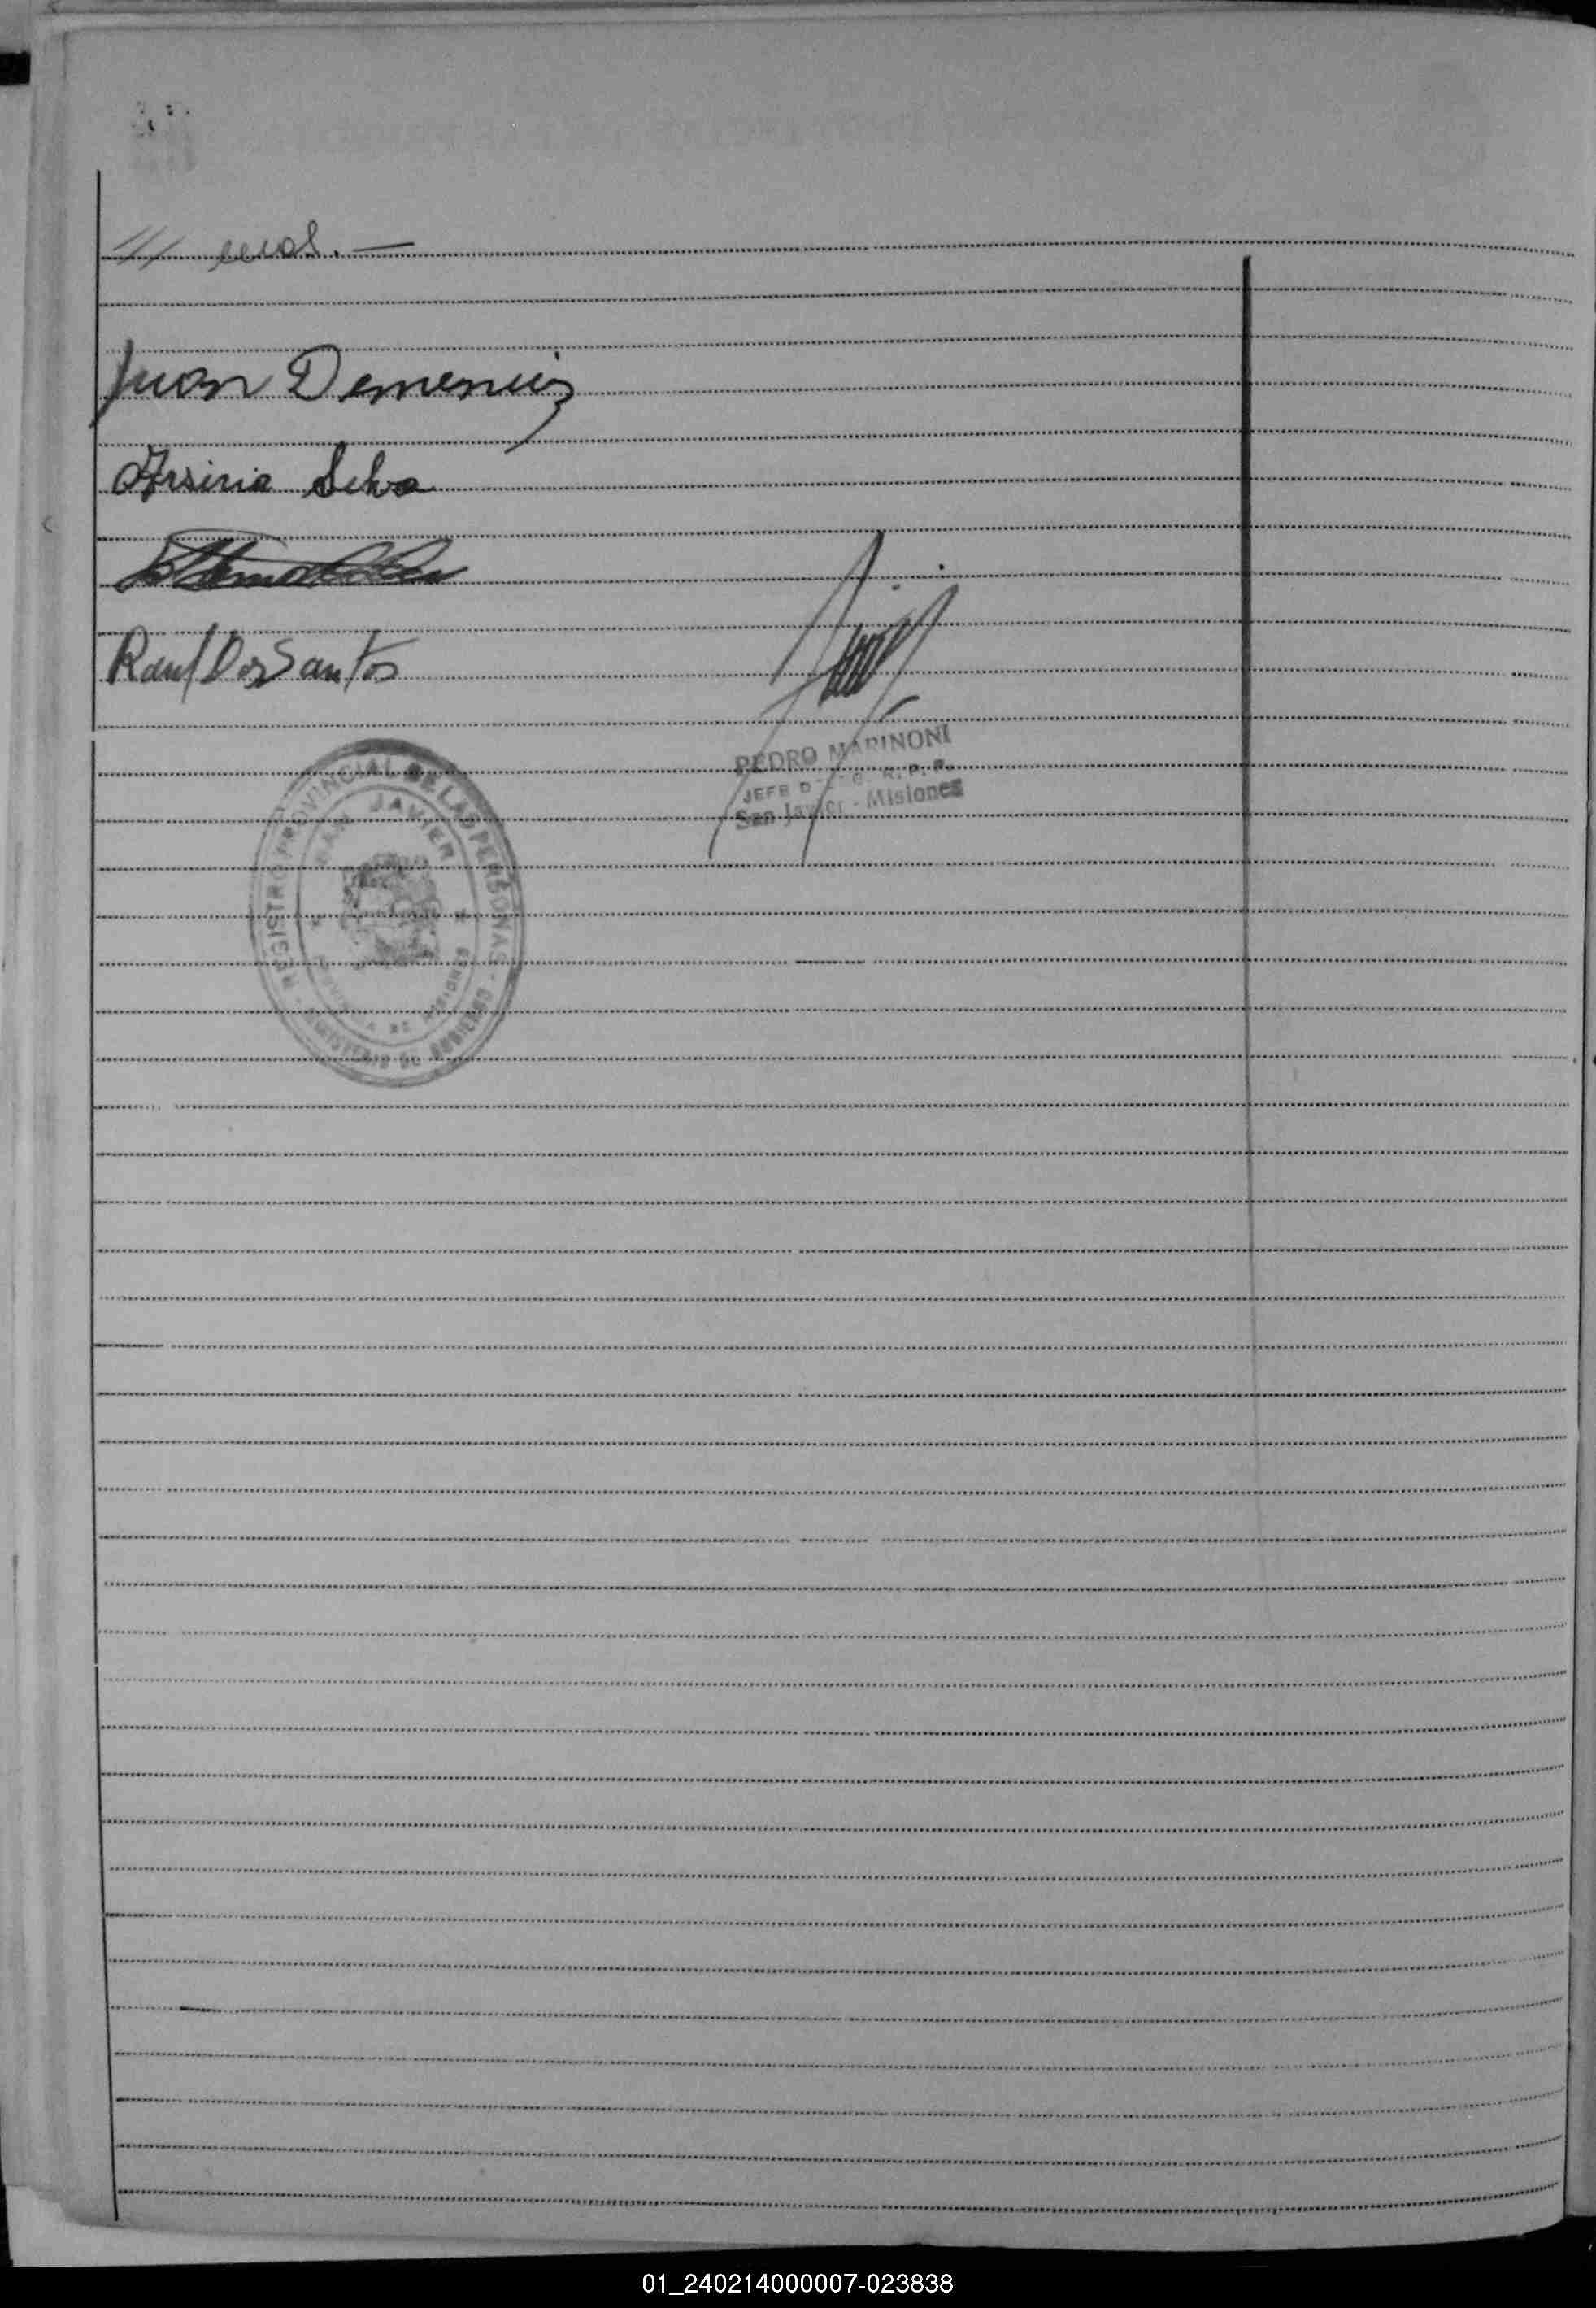 Juan Demeniuz
Arsirio Silva
Raul Dos Santos
PEDRO MARINONI
JEFE D R. P. P.
San Javier - Misiones
REGISTRO PROVINCIAL DE LAS PERSONAS -
SAN JAVIER
PROVINCIA DE MISIONES
MINISTERIO DE GOBIERNO
01_240214000007-023838